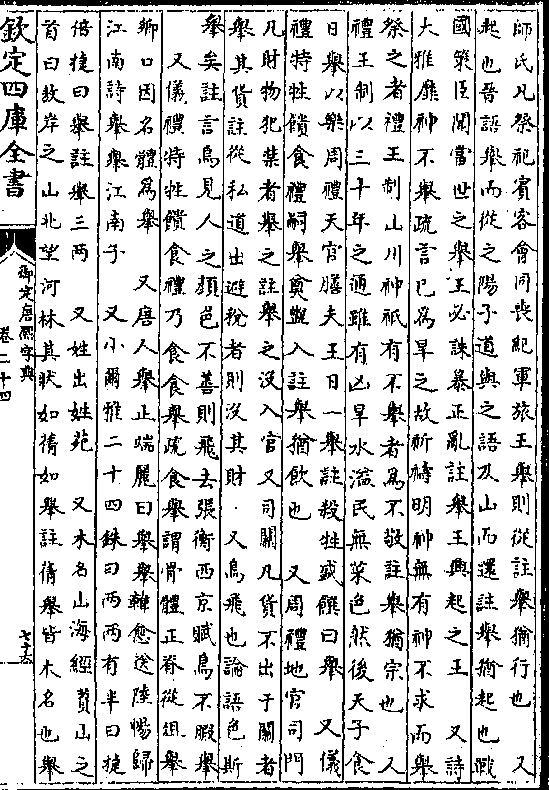 師氏凡祭祀賓客會同喪紀軍旅王舉則從註舉猶行也　又
起也晉語舉而從之陽子道與之語及山而還註舉猶起也戰
國策臣聞當世之舉王必誅暴正亂註舉王興起之王　又詩
大雅靡神不舉疏言已為旱之故祈禱明神無有神不求而舉
祭之者禮王制山川神祇有不舉者為不敬註舉猶宗也　又
禮王制以三十年之通雖有凶旱水溢民無菜色然後天子食
日舉以樂周禮天官膳夫王日一舉註殺牲盛饌曰舉　又儀
禮特牲饋食禮嗣舉奠盥入註舉猶飲也　又周禮地官司門
凡財物犯禁者舉之註舉之沒入官又司關凡貨不出于關者
舉其貨註從私道出避稅者則沒其財　又鳥飛也論語色斯
舉矣註言鳥見人之顏色不善則飛去張衡西京賦鳥不暇舉
　又儀禮特牲饋食禮乃食食舉疏食舉謂骨體正脊從俎舉
鄉口因名體為舉　又唐人舉止端麗曰舉舉韓愈送陸暢歸
江南詩舉舉江南子　又小爾雅二十四銖曰兩兩有半曰捷
倍捷曰舉註舉三兩　又姓出姓苑　又木名山海經贊山之
首曰敖岸之山北望河林其狀如蒨如舉註蒨舉皆木名也舉
欽定四庫全書
御定康熙字典
卷二十四
七十六